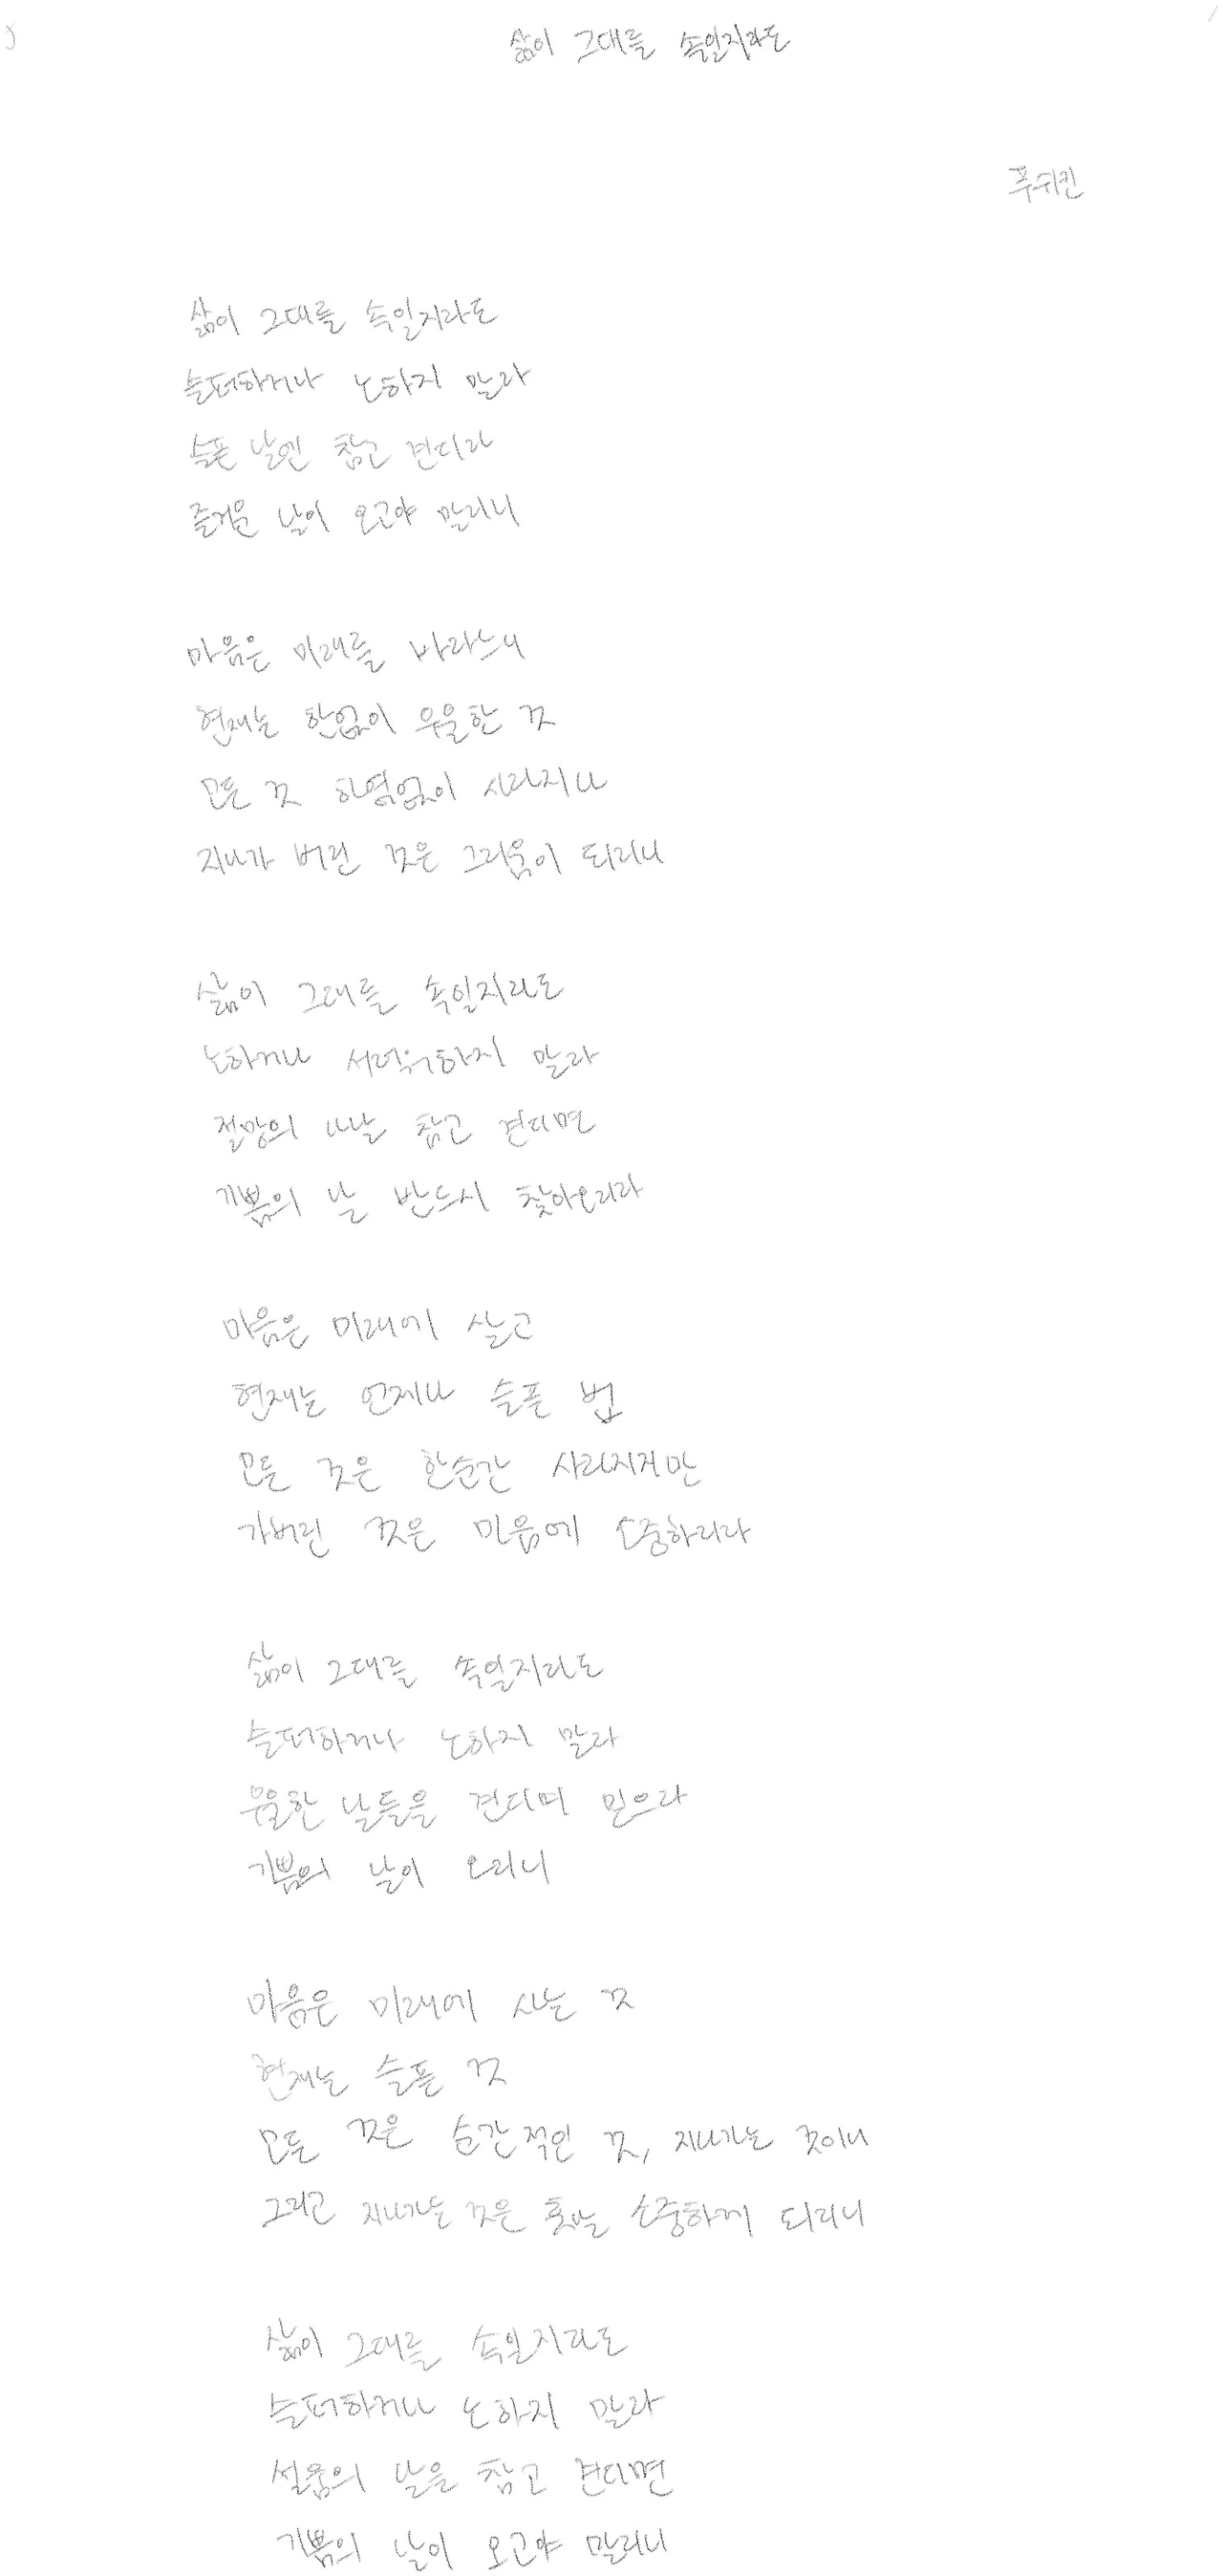 삶이 그대를 속일지라도
푸쉬킨
삶이 그대를 속일지라도
슬퍼하거나 노하지 말라
슬픈 날엔 참고 견디라
즐거운 날이 오고야 말리니
마음은 미래를 바라느니
현재는 한없이 우울한 것
모든 것 하염없이 사라지나
지나가 버린 것은 그리움이 되리니
삶이 그대를 속일지라도
노하거나 서러워하지 말라
절망의 나날 참고 견디면
기쁨의 날 반드시 찾아오리라
마음은 미래에 살고
현재는 언제나 슬픈 법
모든 것은 한순간 사라지지만
가버린 것은 마음에 소중하리라
삶이 그대를 속일지라도
슬퍼하거나 노하지 말라
우울한 날들을 견디며 믿으라
기쁨의 날이 오리니
마음은 미래에 사는 것
현재는 슬픈 것
모든 것은 순간적인 것, 지나가는 것이니
그리고 지나가는 것은 훗날 소중하게 되리니
삶이 그대를 속일지라도
슬퍼하거나 노하지 말라
설움의 날을 참고 견디면
기쁨의 날이 오고야 말리니